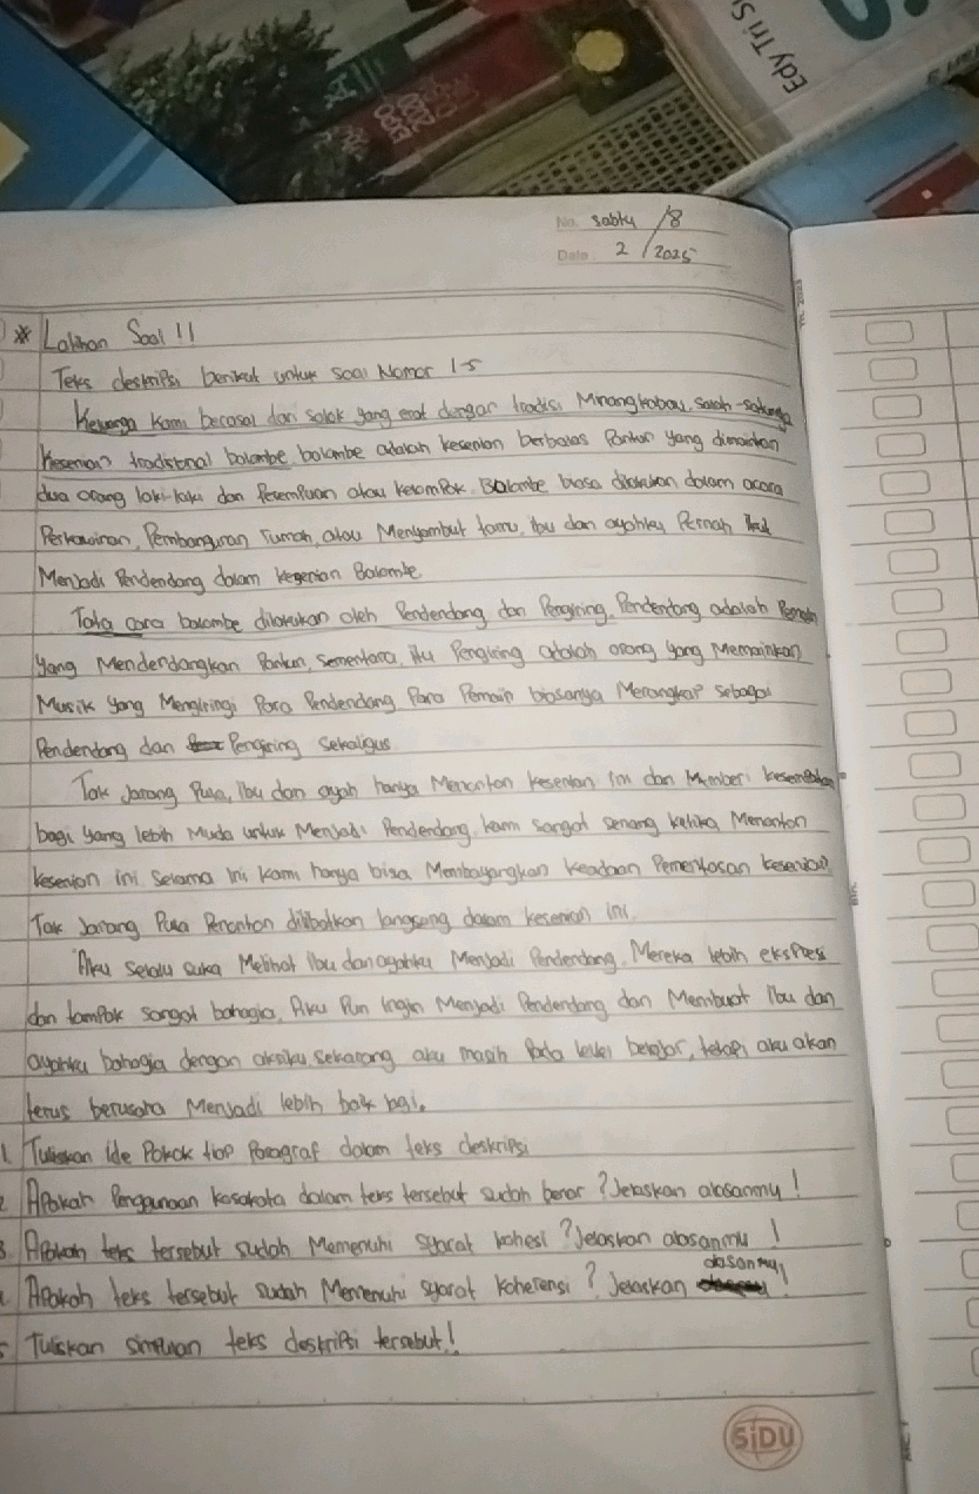 Edy Tri S
No. sabtu / 8
Date 2 / 2025
* Latihan Soal !!
Teks deskripsi berikut untuk soal Nomor 1-5
Keluarga kami berasal dari solok yang erat dengan tradisi Minangkabau, salah-satunya
kesenian tradisional balambe. balambe adalah kesenian berbalas Pantun yang dimainkan
dua orang laki-laki dan Perempuan atau kelompok. Balambe biasa dilakukan dalam acara
Perkawinan, Pembangunan rumah, atau Menyambut tamu, ibu dan ayahku Pernah ikut
Menjadi Pendendang dalam kesenian Balambe
Tata cara balambe dilakukan oleh Pendendang dan Pengiring. Pendendang adalah Pemain
yang Mendendangkan Pantun, sementara, itu Pengiring adalah orang yang Memainkan
Musik yang Mengiringi Para Pendendang Para Pemain biasanya Merangkap sebagai
Pendendang dan Pengiring sekaligus
Tak Jarang Pula, Ibu dan ayah hanya Menonton kesenian ini dan Memberi kesempatan
bagi yang lebih Muda untuk Menjadi Pendendang, kami sangat senang ketika Menonton
kesenian ini selama ini kami hanya bisa Membayangkan keadaan Pementasan kesenian?
Tak Jarang Pula Penonton dilibatkan langsung dalam kesenian ini.
Aku selalu suka Melihat Ibu dan ayahku Menjadi Pendendang. Mereka lebih ekspresi
dan tampak sangat bahagia, Aku Pun Ingin Menjadi Pendendang dan Membuat Ibu dan
ayahku bahagia dengan aksiku, sekarang aku masih Pada level belajar, tetapi aku akan
terus berusaha Menjadi lebih baik lagi.
1. Tuliskan Ide Pokok tiap Paragraf dalam teks deskripsi
2. Apakah Penggunaan kosakata dalam teks tersebut sudah benar ? Jelaskan alasanmu !
3. Apakah teks tersebut sudah Memenuhi syarat kohesi ? Jelaskan alasanmu !
4. Apakah teks tersebut sudah Memenuhi syarat koherensi ? Jelaskan alasanmu !
5. Tuliskan simpulan teks deskripsi tersebut !
SiDU